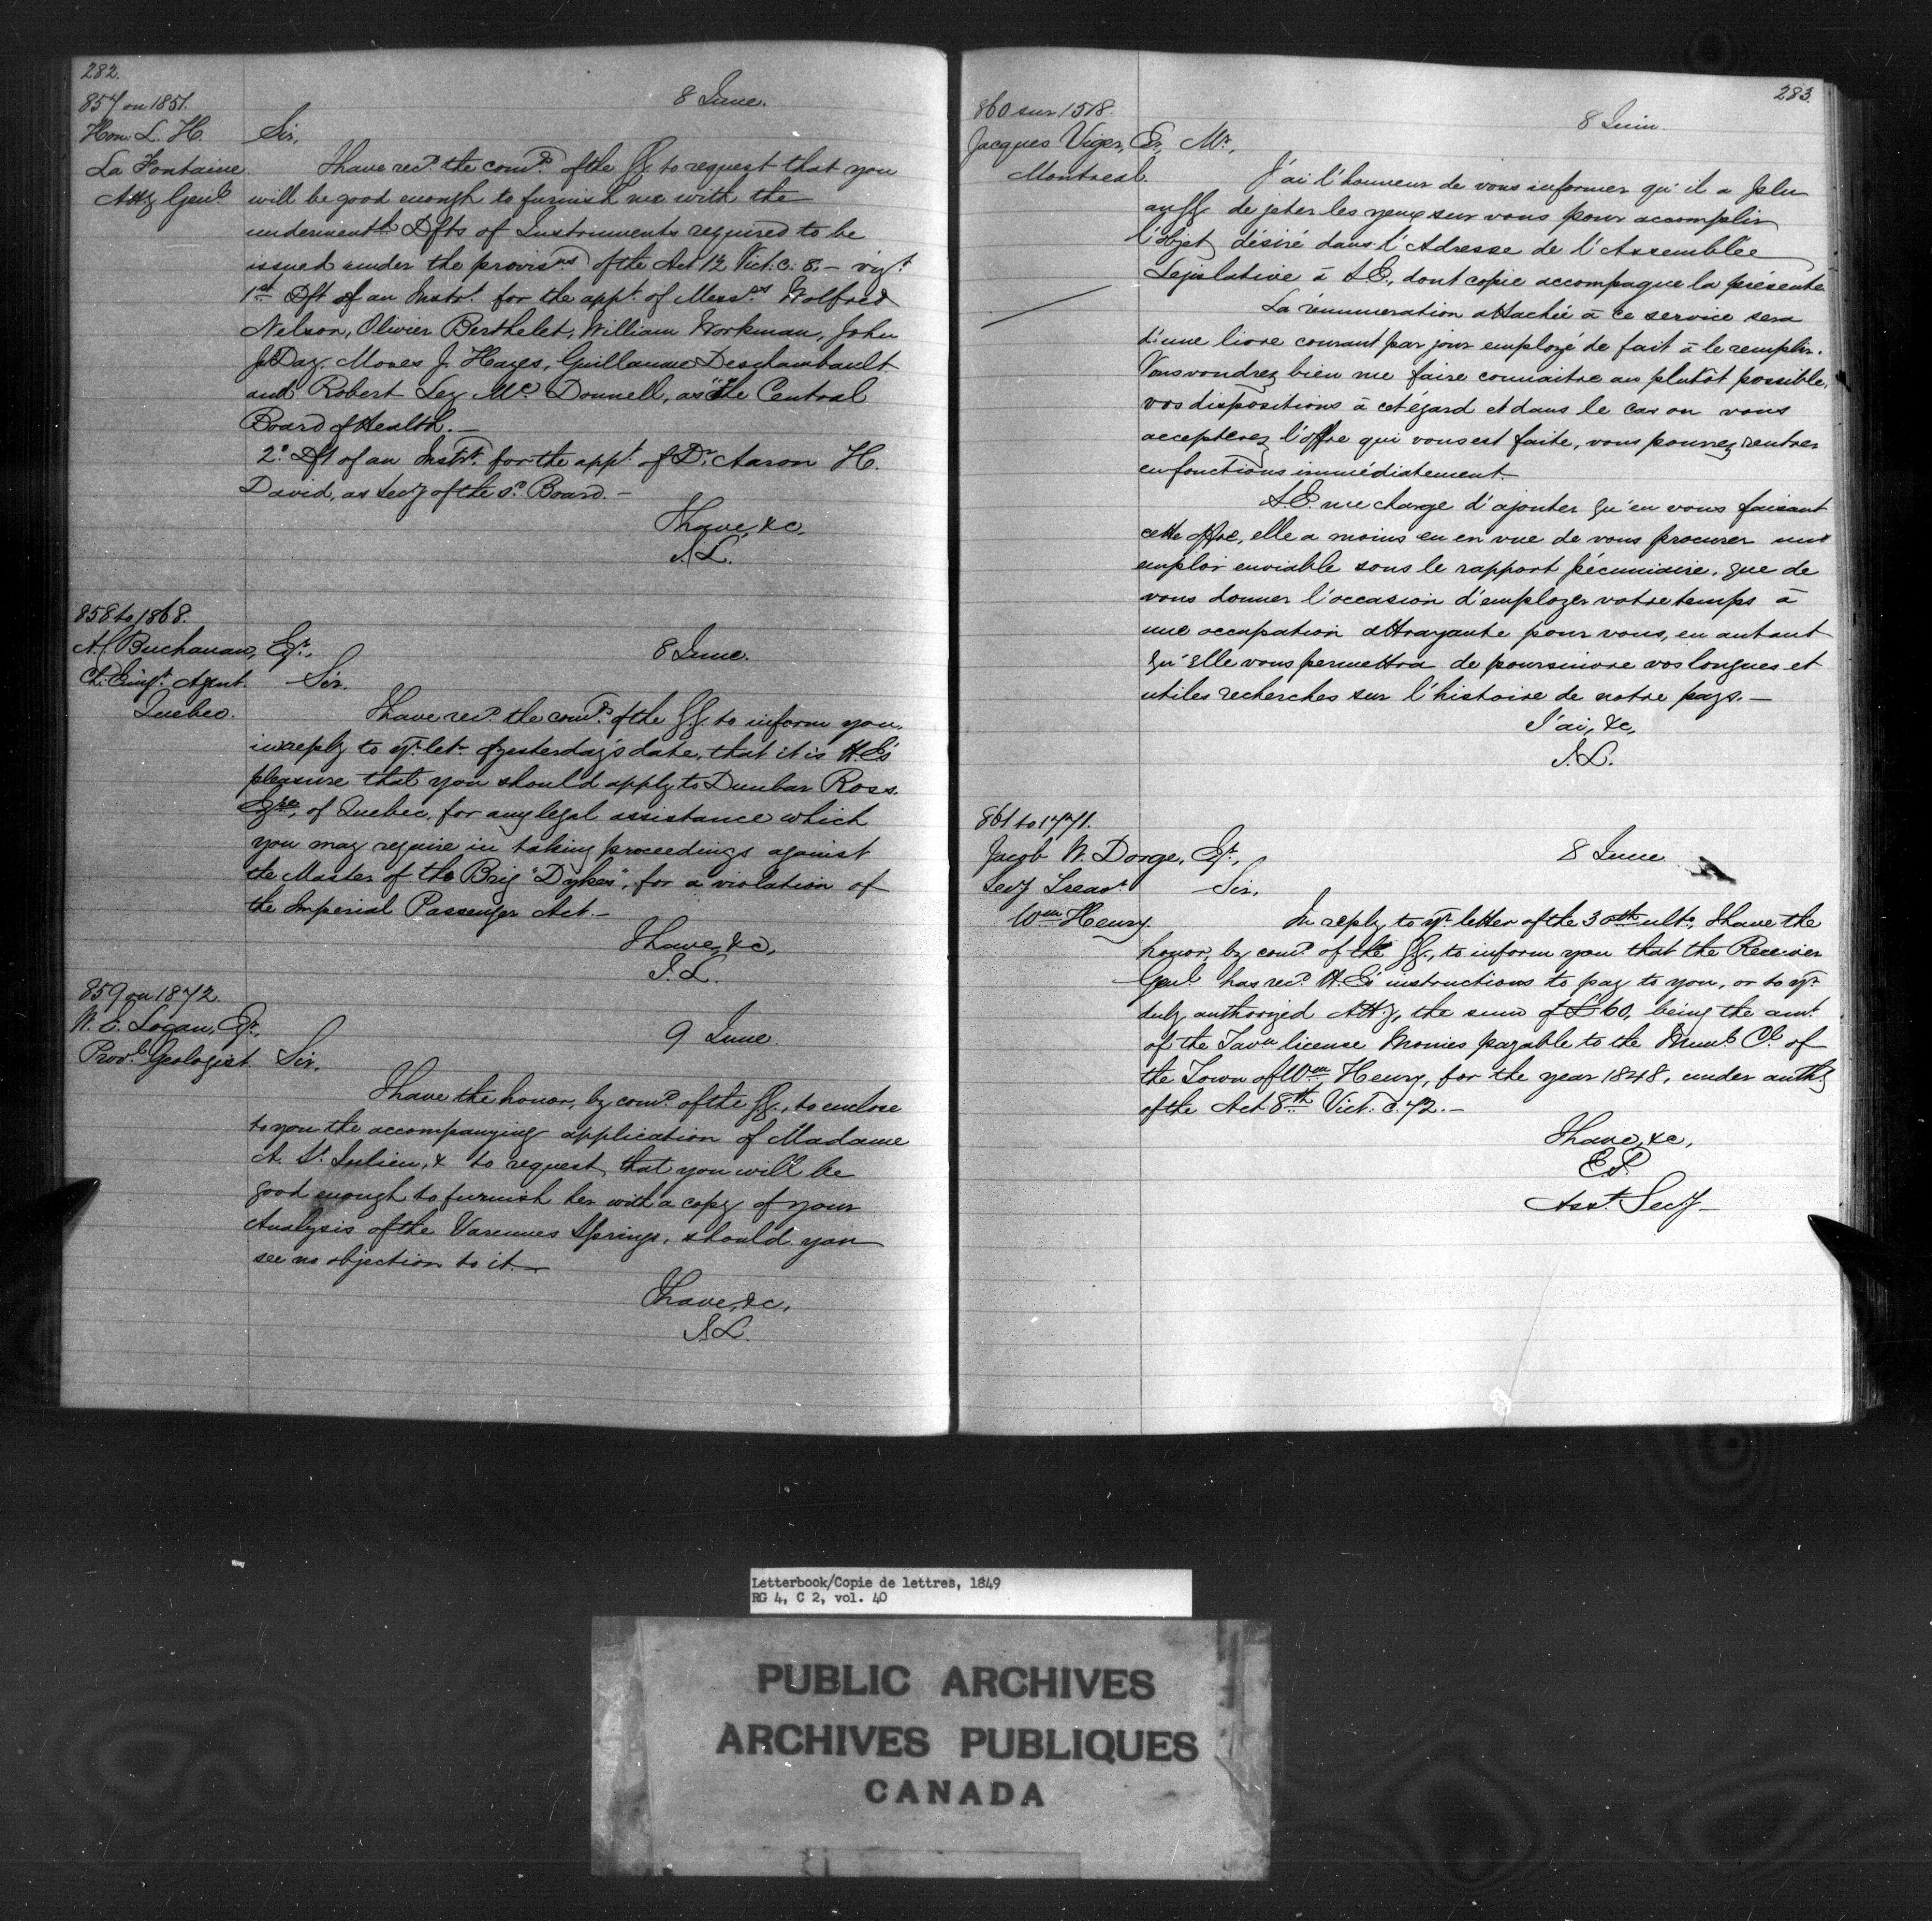 282.
857 on 1851.
8 June.
Hon: L. H.
La Fontaine
Atty Genl
Sir,
I have recd. the comds. of the G.G. to request that you
will be good enough to furnish me with the
undermentd. Dfts of Instruments required to be
issued under the provisns of the Act 12 Vict: c: 8. – vizt.
1st Dft of an Instrt. for the appt. of Messrs Wolfred
Nelson, Olivier Berthelet, William Workman, John
J. Day, Moses J. Hayes, Guillaume Deschambault
and Robert Ley Mc. Donnell, as "The Central
Board of Health. –
2o. Dft of an Instrt. for the appt. of Dr. Aaron H.
David, as Secy of the sd. Board. –
I have, &c,
J.L.
858 to 1868.
A. Buchanan, Esr.,
Ch: Emigt. Agent.
Quebec.
8 June.
Sir.
I have recd. the comds. of the G.G. to inform you,
in reply to yr. let- of yesterday's date, that it is H.E's
pleasure that you should apply to Dunbar Ross.
Esqre, of Quebec, for any legal assistance which
you may require in taking proceedings against
the Master of the Brig "Dykes", for a violation of
the Imperial Passenger Act. –
I have, &c,
J.L.
859 on 1872.
W. E. Logan, Esr.,
Provl. Geologist
9 June.
Sir,
I have the honor, by comd. of the G.G., to enclose
to you the accompanying application of Madame
A. St. Julien, & to request, that you will be
good enough to furnish her with a copy of your
Analysis of the Varennes Springs, should you
see no objection to it. –
I have, &c,
J.L.
283.
860 sur 1518.
Jacques Viger, Er,
Montreal.
8 Juin.
Mr,
J'ai l'honneur de vous informer qu'il a plu
au G.G. de jeter les yeux sur vous pour accomplir
l'objet désiré dans l'Adresse de l'Assemblée
Législative à S.E., dont copie accompagne la présente
La rémuneration attachée à ce service sera
d'une livre courant par jour employé de fait à le remplir.
Vous voudrez bien me faire connaitre au plutôt possible,
vos dispositions à cet égard et dans le cas ou vous
accepterez l'offre qui vous est faite, vous pourrez entrer
en fonctions immédiatement.
S.E. me charge d'ajouter qu'en vous faisant
cette offre, elle a moins eu en vue de vous procurer un
emploi enviable sous le rapport pécuniaire, que de
vous donner l'occasion d'employer votre temps à
une occupation attrayante pour vous, en autant
qu'elle vous permettra de poursuivre vos longues et
utiles recherches sur l'histoire de notre pays. –
J'ai, &c,
J.L.
861 to 1771.
Jacob W. Dorge, Er,
Secy Treasr
Wm Henry.
8 June
Sir,
In reply to yr. letter of the 30th ulto, I have the
honor, by comd. of the G.G., to inform you that the Receiver
Genl has recd. H.E's instructions to pay to you, or to yr.
duly authorized Atty, the sum of £60, being the amt.
of the Tavn license Monies payable to the Munl. Cl. of
the Town of Wm Henry, for the year 1848, under authy
of the Act 8th Vict: c. 72. –
I have, &c,
E.P.
Asst. Secy –
Letterbook/Copie de lettres, 1849
RG 4, C 2, vol. 40
PUBLIC ARCHIVES
ARCHIVES PUBLIQUES
CANADA